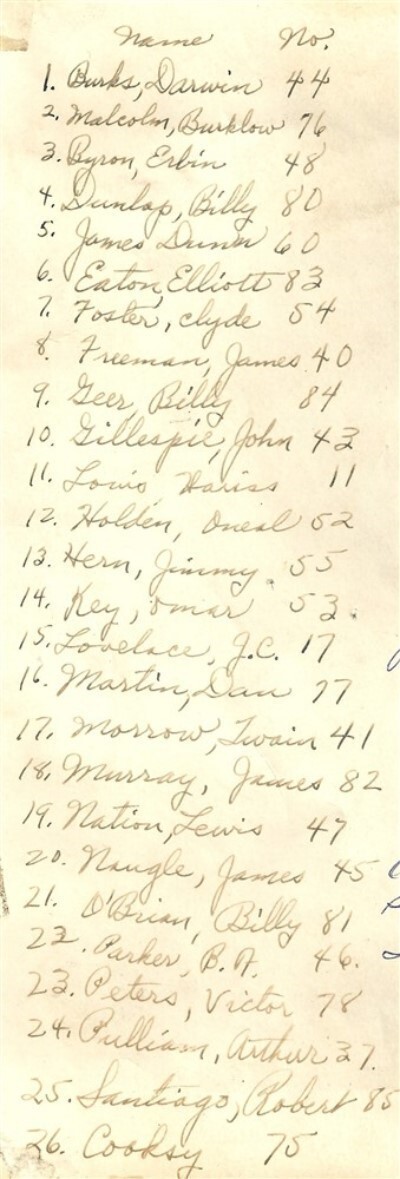 Name No.
1. Burks, Darwin 44
2. Malcolm, Burklow 76
3. Byron, Erbin 48
4. Dunlap, Billy 80
5. James Dunn 60
6. Eaton, Elliott 83
7. Foster, Clyde 54
8. Freeman, James 40
9. Geer, Billy 84
10. Gillespie, John 43
11. Louis Hariss 11
12. Holden, Oneal 52
13. Hern, Jimmy 55
14. Key, Omar 53
15. Lovelace, J.C. 17
16. Martin, Dan 77
17. Morrow, Twain 41
18. Murray, James 82
19. Nation, Lewis 47
20. Naugle, James 45
21. O'Brian, Billy 81
22. Parker, B. A. 46.
23. Peters, Victor 78
24. Pulliam, Arthur 37.
25. Santiago, Robert 85
26. Cooksy 75